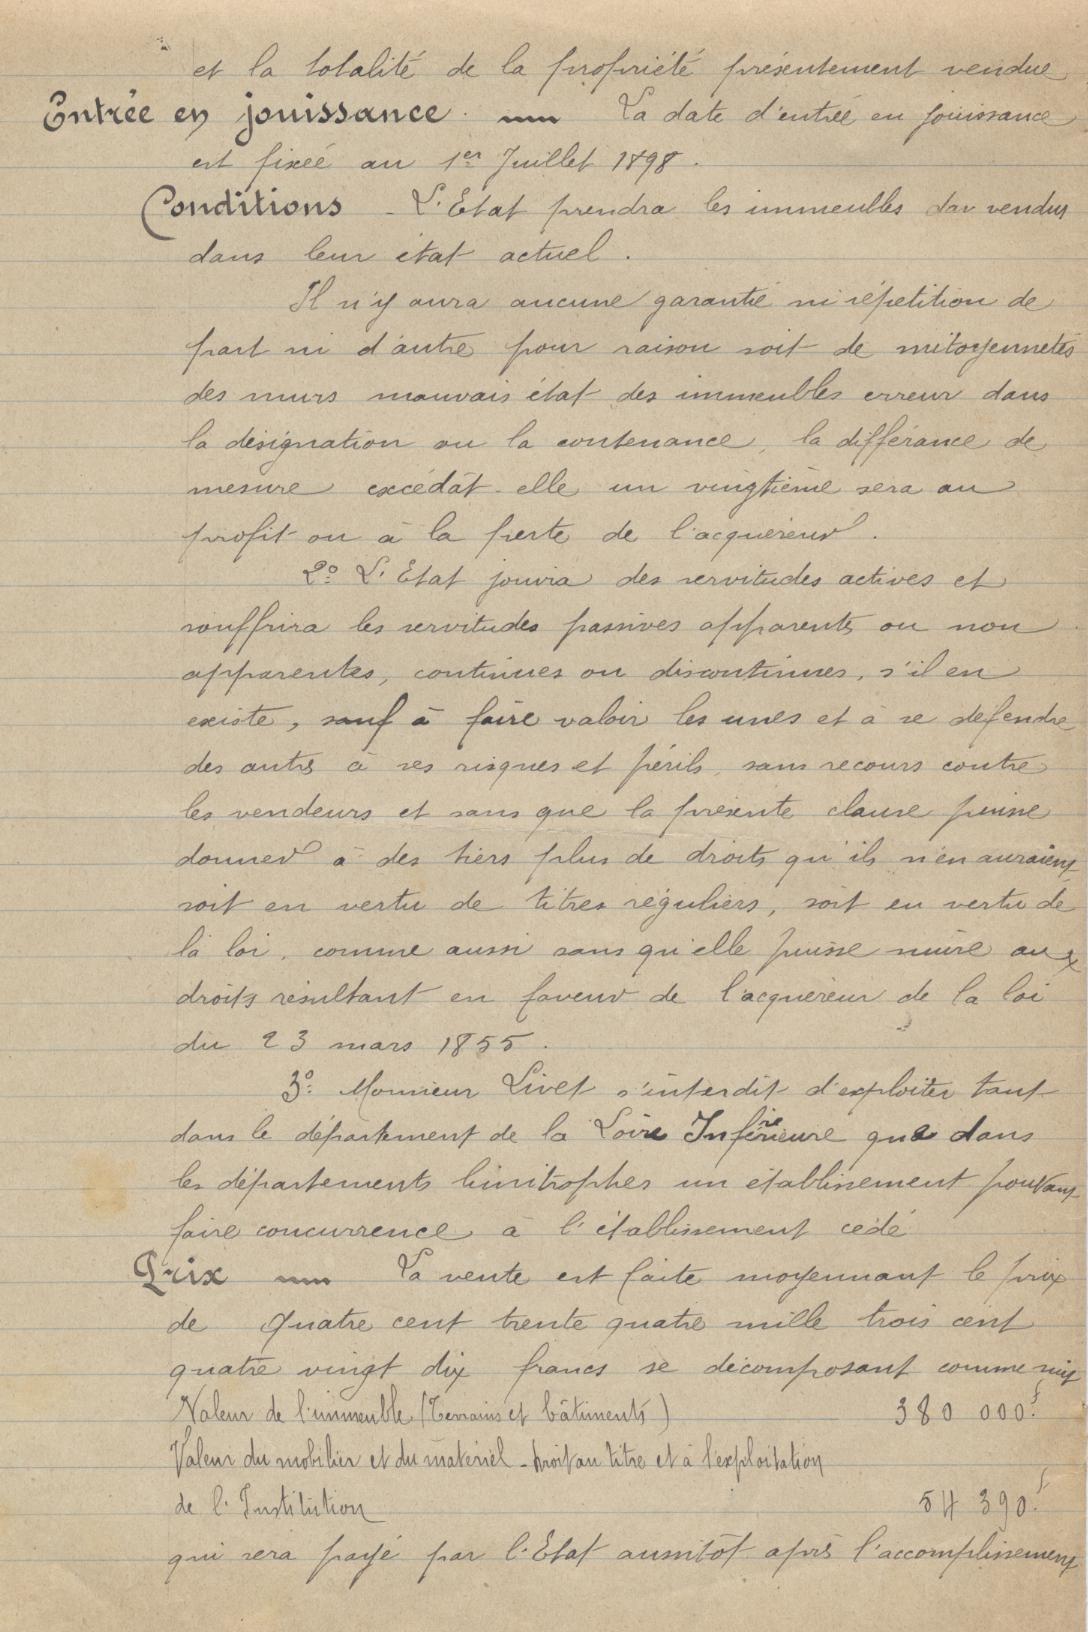 et la totalité de la propriété présentement vendue
Entrée en jouissance. — La date d'entrée en jouissance
est fixée au 1er Juillet 1898.
Conditions - L'Etat prendra les immeubles vendus
dans leur état actuel.
Il n'y aura aucune garantie ni répétition de
part ni d'autre pour raison soit de mitoyennetés
des murs mauvais état des immeubles erreur dans
la désignation ou la contenance, la différance de
mesure excédât-elle un vingtième sera au
profit ou à la perte de l'acquéreur.
2o: L'Etat jouira des servitudes actives et
souffrira les servitudes passives apparents ou non
apparentes, continues ou discontinues, s'il en
existe, sauf à faire valoir les unes et à se défendre
des autres à ses risques et périls, sans recours contre
les vendeurs et sans que la présente clause puisse
donner à des tiers plus de droits qu'ils n'en auraient
soit en vertu de titres réguliers, soit en vertu de
la loi, comme aussi sans qu'elle puisse nuire aux
droits résultant en faveur de l'acquéreur de la loi
du 23 mars 1855.
3o: Monsieur Livet s'interdit d'exploiter tant
dans le département de la Loire Inférieure que dans
les départements limitrophes un établissement pouvant
faire concurrence à l'établissement cédé
Prix — La vente est faite moyennant le prix
de Quatre cent trente quatre mille trois cent
quatre vingt dix francs se décomposant comme suit
Valeur de l'immeuble (Terrains et bâtiments) 380 000.f
Valeur du mobilier et du matériel - droit au titre et à l'exploitation
de l'Institution 54 390.f
qui sera payé par l'Etat aussitôt après l'accomplissement